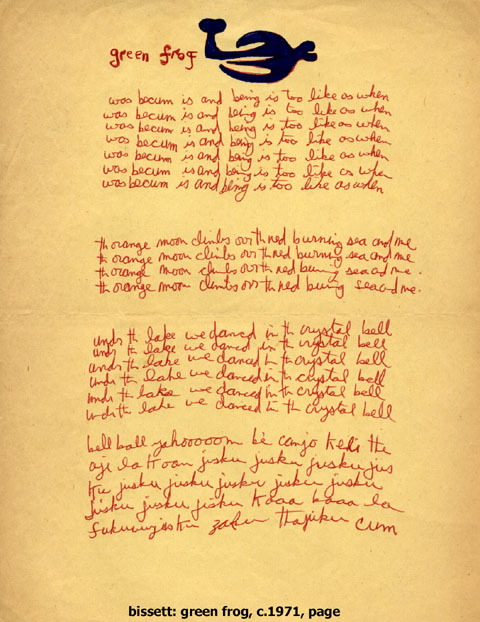 green frog
was becum is and being is too like as when
was becum is and being is too like as when
was becum is and being is too like as when
was becum is and being is too like as when
was becum is and being is too like as when
was becum is and being is too like as when
was becum is and being is too like as when
th orange moon climbs ovr th red burning sea and me
th orange moon climbs ovr th red burning sea and me
th orange moon climbs ovr th red burning sea and me.
th orange moon climbs ovr th red buring sea and me.
undr th lake we danced in th crystal bell
undr th lake we danced in th crystal bell
undr th lake we danced in th crystal bell
undr th lake we danced in th crystal bell
undr th lake we danced in th crystal bell
undr th lake we danced in th crystal bell
bell ball zehoooooom be canjo the
la Koan jisku jusku jusku jus
jusku jisku jusku jisku jusku
jisku jusku jisku Kaaa baaa la
cum
bissett: green frog, c.1971, page